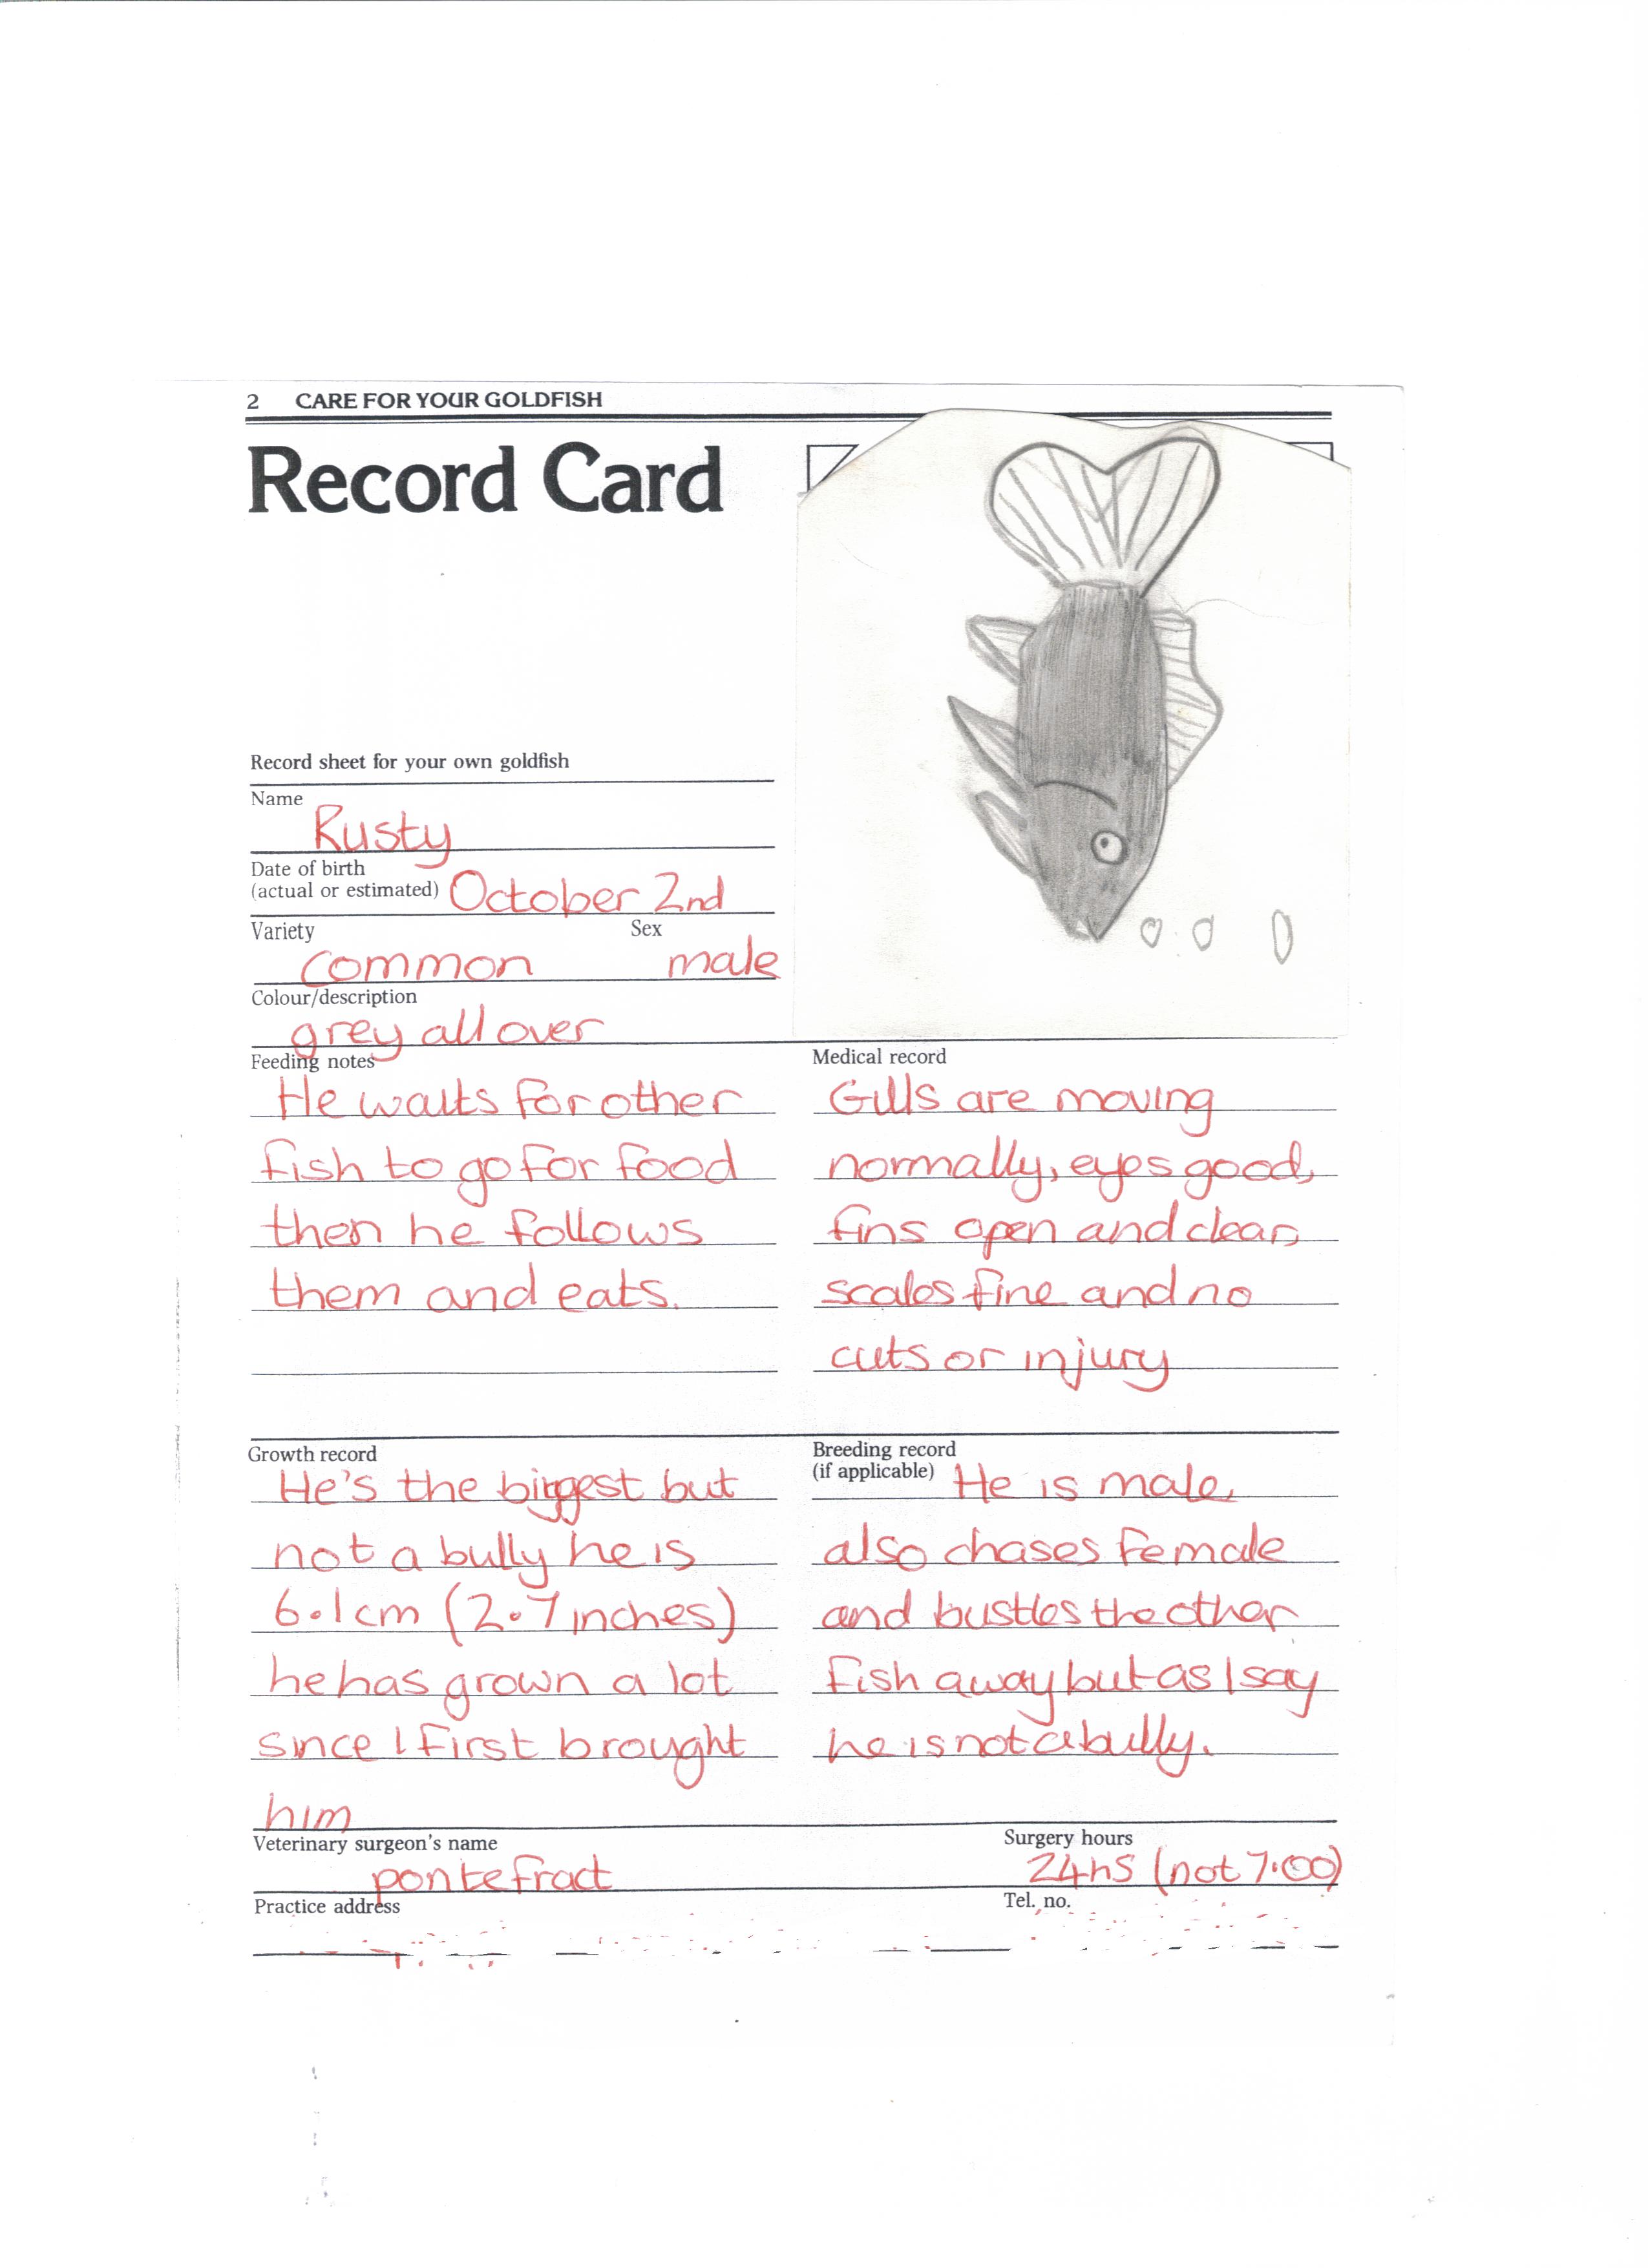 2 CARE FOR YOUR GOLDFISH
Record Card
Record sheet for your own goldfish
Name
Rusty
Date of birth
(actual or estimated) October 2nd
Variety Sex
common male
Colour/description
grey all over
Feeding notes
He waits for other
fish to go for food
then he follows
them and eats.
Medical record
Gills are moving
normally, eyes good,
fins open and clear,
scales fine and no
cuts or injury
Growth record
He's the biggest but
not a bully he is
6.1cm (2.7 inches)
he has grown a lot
since I first brought
him
Breeding record
(if applicable) He is male,
also chases female
and bustles the other
fish away but as I say
he is not a bully.
Veterinary surgeon's name Surgery hours
pontefract 24hs (not 7.00)
Practice address Tel. no.